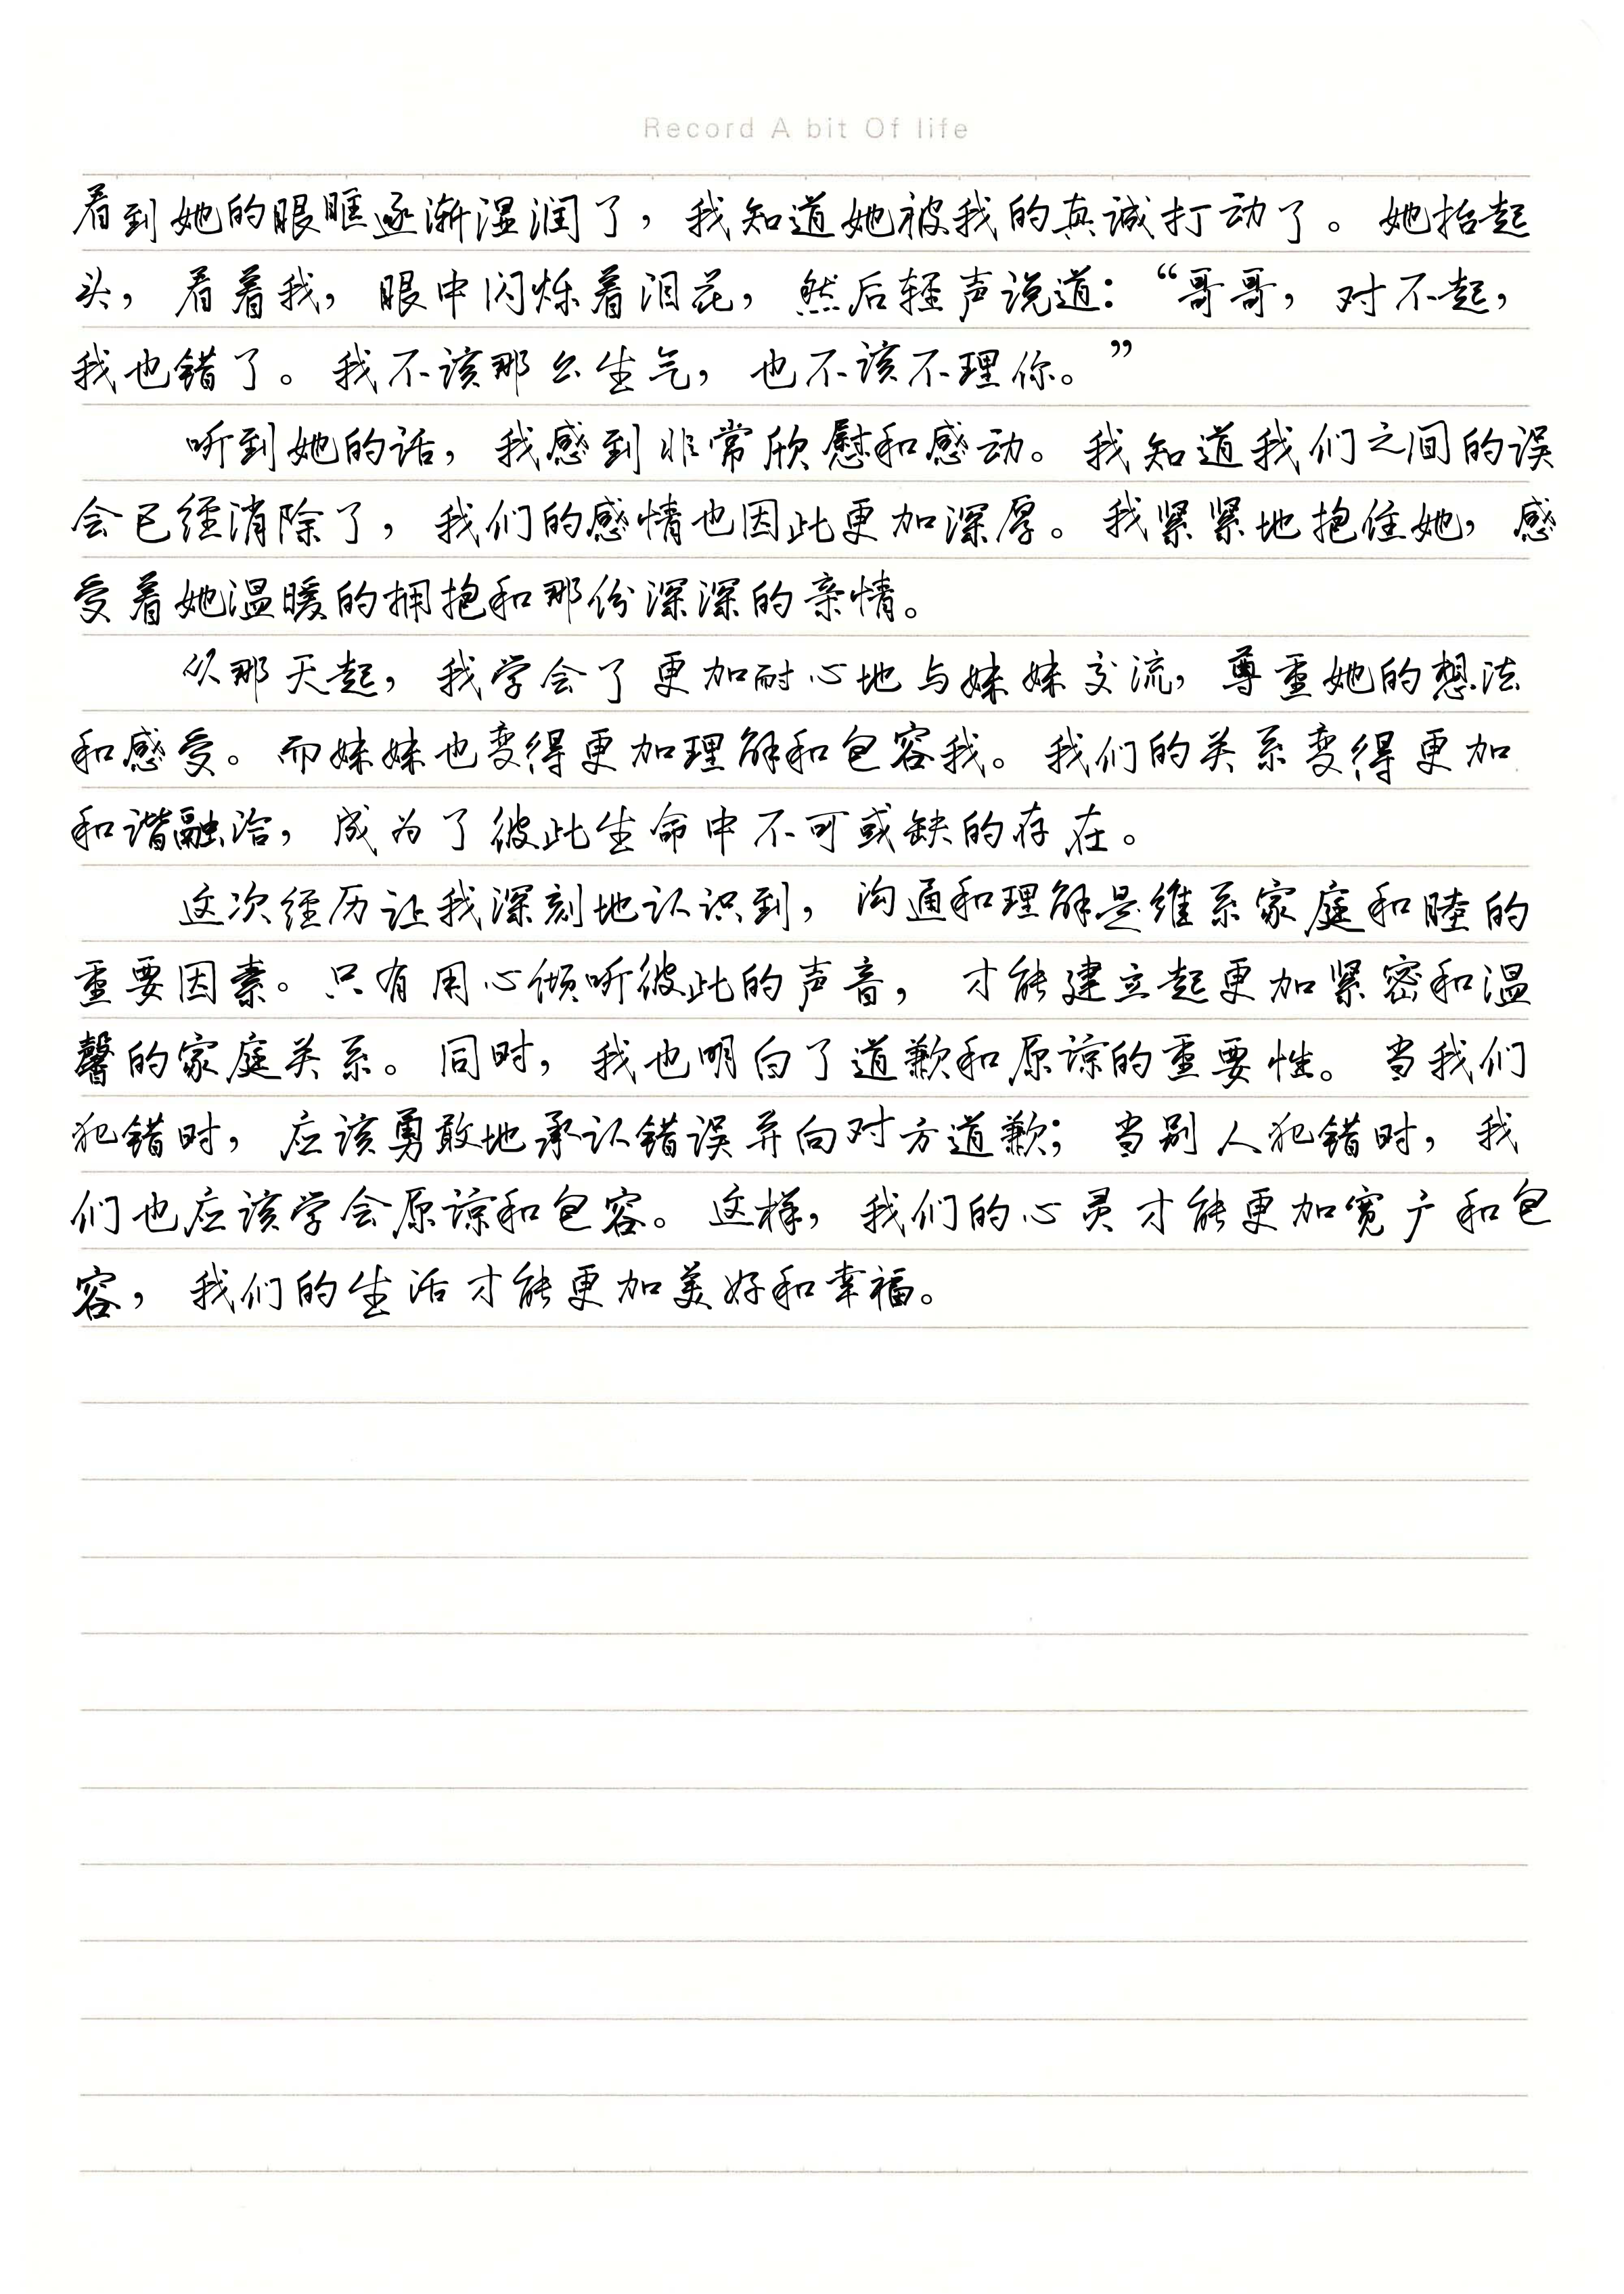 Record A bit Of life
看到她的眼眶逐渐湿润了，我知道她被我的真诚打动了。她抬起
头，看着我，眼中闪烁着泪花，然后轻声说道：“哥哥，对不起，
我也错了。我不该那么生气，也不该不理你。”
听到她的话，我感到非常欣慰和感动。我知道我们之间的误
会已经消除了，我们的感情也因此更加深厚。我紧紧地抱住她，感
受着她温暖的拥抱和那份深深的亲情。
从那天起，我学会了更加耐心地与妹妹交流，尊重她的想法
和感受。而妹妹也变得更加理解和包容我。我们的关系变得更加
和谐融洽，成为了彼此生命中不可或缺的存在。
这次经历让我深刻地认识到，沟通和理解是维系家庭和睦的
重要因素。只有用心倾听彼此的声音，才能建立起更加紧密和温
馨的家庭关系。同时，我也明白了道歉和原谅的重要性。当我们
犯错时，应该勇敢地承认错误并向对方道歉；当别人犯错时，我
们也应该学会原谅和包容。这样，我们的心灵才能更加宽广和包
容，我们的生活才能更加美好和幸福。